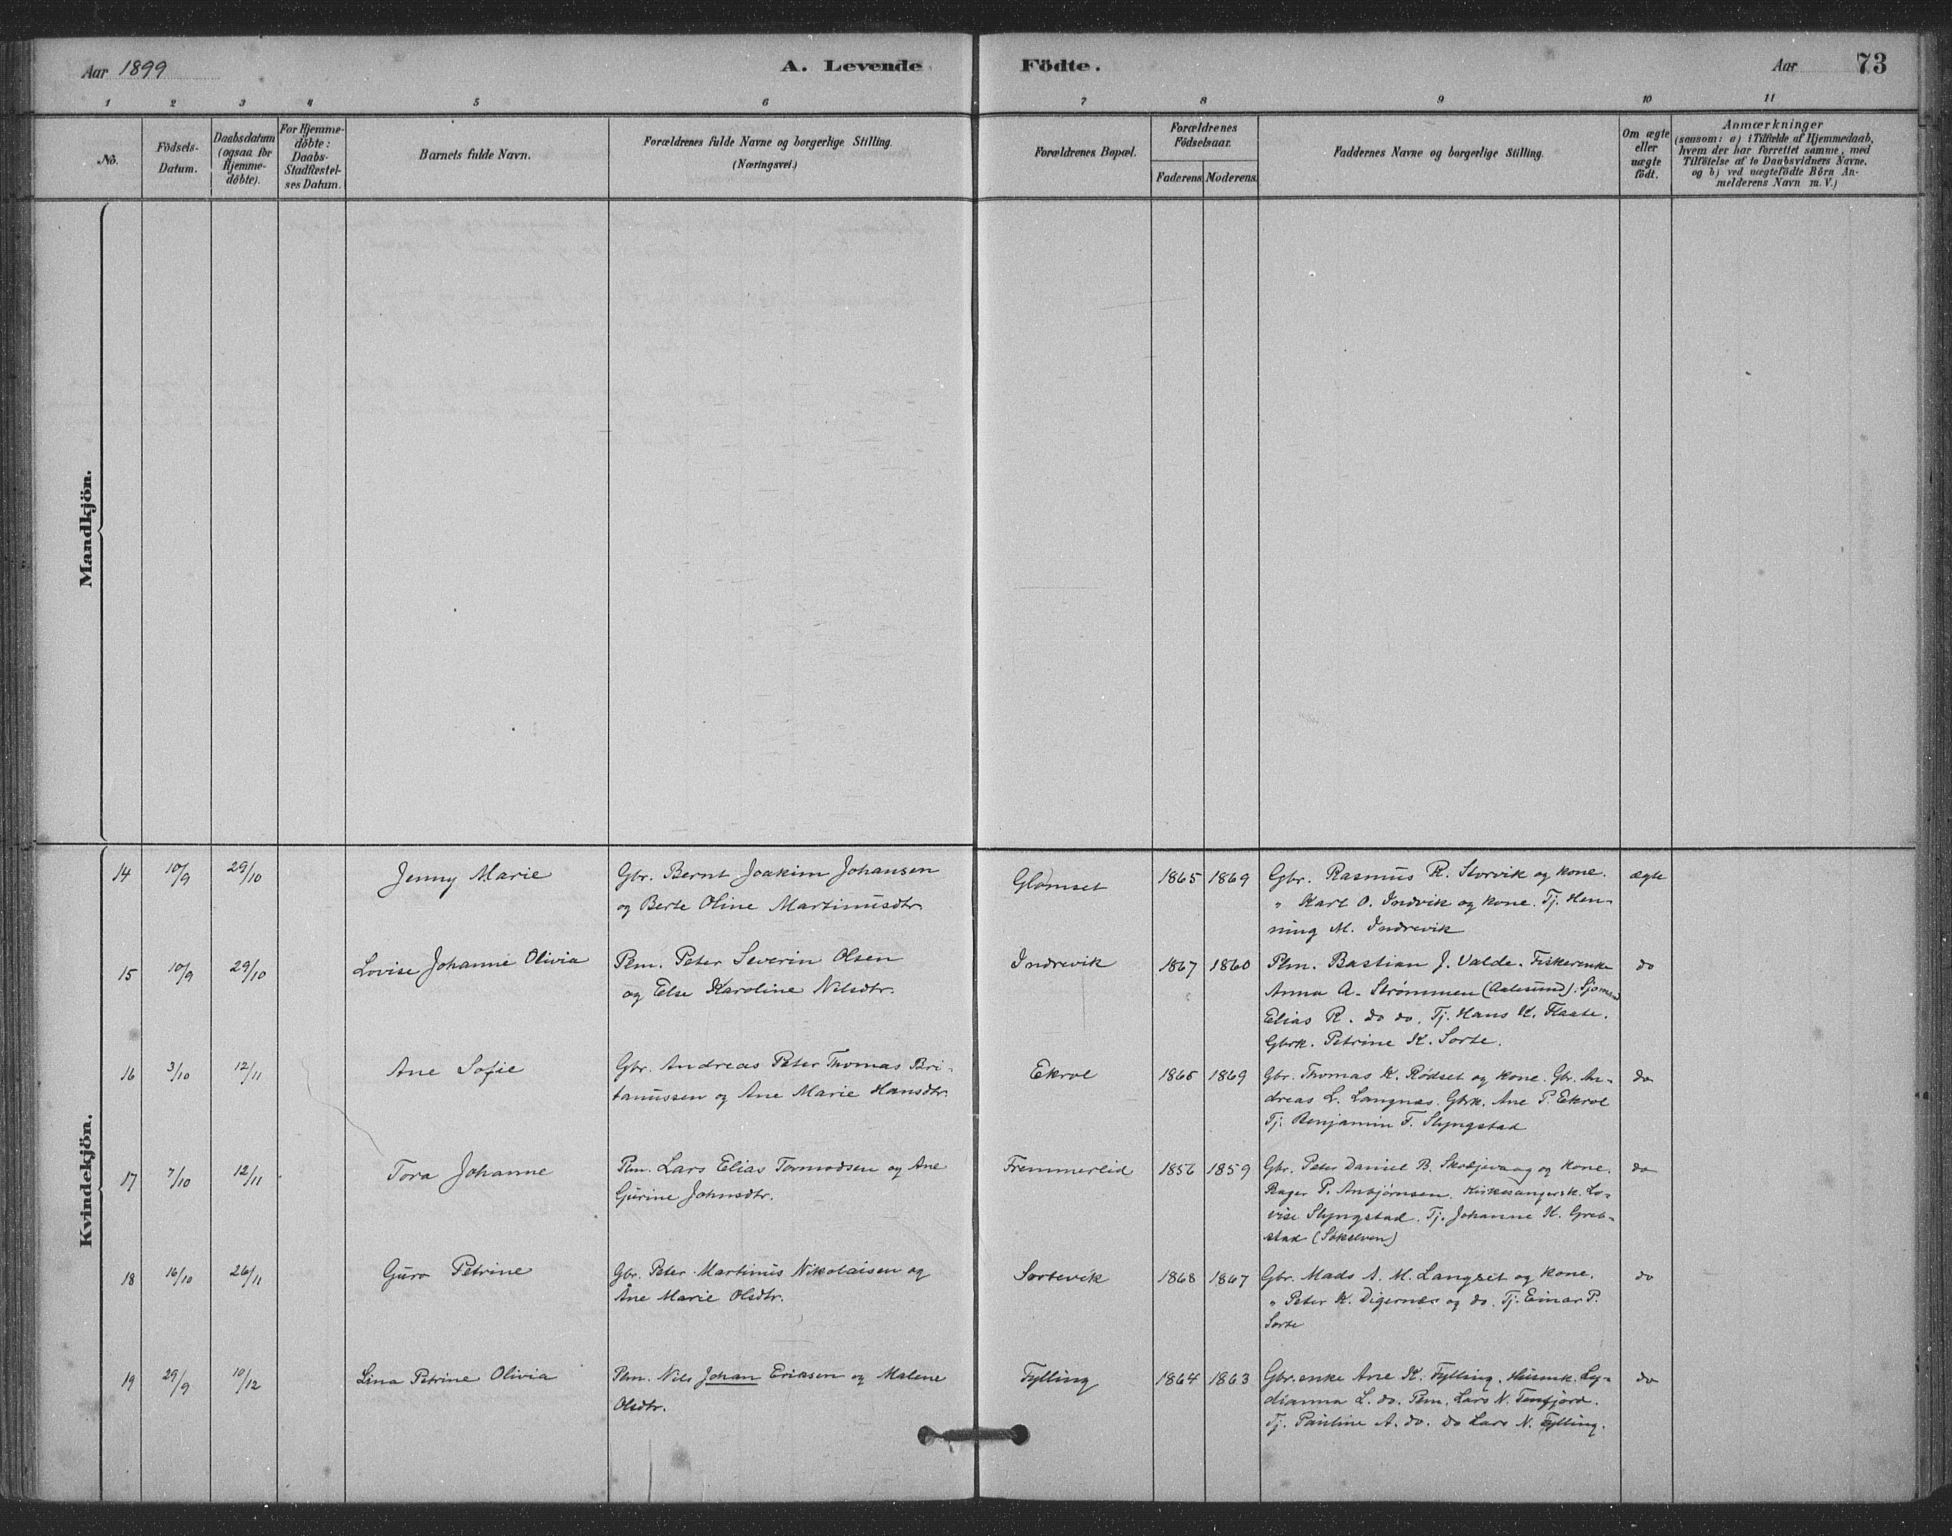 Aar 1899
A. Levende
Födte.
Aar
73
1 2 3 4 5 6 7 8 9 10 11
No.
Födsels-
Datum.
Daabsdatum
(ogsaa for
Hjemme-
döbte).
For Hjemme-
döbte:
Daabs-
Stadfæstel-
ses Datum.
Barnets fulde Navn.
Forældrenes fulde Navne og borgerlige Stilling.
(Næringsvei.)
Forældrenes Bopæl.
Forældrenes
Födselsaar.
Faderens. Moderens.
Faddernes Navne og borgerlige Stilling.
Om ægte
eller
uægte
födt.
Anmærkninger
(saasom: a) i Tilfælde af Hjemmedaab,
hvem der har forrettet samme, med
Tilföielse af to Daabsvidners Navne,
og b) ved uægtefödte Börn An-
melderens Navn m. V.)
Mandkjön.
Kvindekjön.
14 10/9 29/10 Jenny Marie
Gbr. Bernt Joakim Johansen
og Berte Oline Martinusdtr.
Glomset 1865 1869
Gbr. Rasmus R. Storvik og kone.
" Karl O. Indvik og kone. Tj. Hen-
ning M. Indrevik
ægte
15 10/9 29/10 Lovise Johanne Olivia
Plm. Peter Severin Olsen
og Else Karoline Nilsdtr.
Indrevik 1867 1860
Plm. Bastian J. Valde. Fiskerenke
Anna A. Strømmen (Aalesund). Sjømand
Elias R. do do. Tj. Hans K. Flaate.
Gbrk. Petrine K. Sorte.
do
16 3/10 12/11 Ane Sofie
Gbr. Andreas Peter Thomas Bri-
tanussen og Ane Marie Hansdtr.
Ekrol 1865 1869
Gbr. Thomas K. Rødset og kone. Gbr. An-
dreas L. Langnes. Gbrk. Ane P. Ekrol
Tj. Benjamin F. Slyngstad
do
17 7/10 12/11 Tora Johanne
Plm. Lars Elias Tormodsen og Ane
Gurine Johnsdtr.
Fremmerlid 1856 1859
Gbr. Peter Daniel B. Skodjevaag og kone.
Bager P. Ansjørnsen. Kirkesangersk. Lo-
vise Slyngstad. Tj. Johanne H. Greb-
stad (Søkelven)
do
18 16/10 26/11 Guro Petrine
Gbr. Peter Martinus Nikolaisen og
Ane Marie Olsdtr.
Sortevik 1868 1867
Gbr. Mads A. M. Langset og kone.
" Peter K. Digernes og do. Tj. Einar P.
Sorte
do
19 29/9 10/12 Lina Petrine Olivia
Plm. Nils Johan Eriksen og Malene
Olsdtr.
Fylling 1864 1863
Gbr.enke Ane K. Fylling. Husmk. Ly-
dianna L. do. Plm. Lars N. Tenfjord.
Tj. Pauline A. do. do Lars N. Fylling.
do